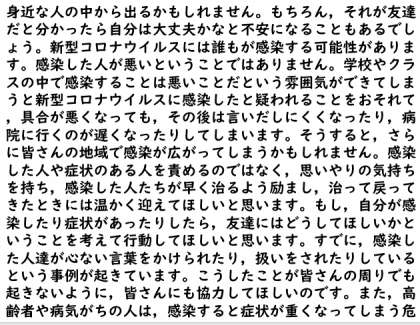 身近な人の中から出るかもしれません。もちろん，それが友達
だと分かったら自分は大丈夫かなと不安になることもあるでし
ょう。新型コロナウイルスには誰もが感染する可能性がありま
す。感染した人が悪いということではありません。学校やクラ
スの中で感染することは悪いことだという雰囲気ができてしま
うと新型コロナウイルスに感染したと疑われることをおそれて
，具合が悪くなっても，その後は言いだしにくくなったり，病
院に行くのが遅くなったりしてしまいます。そうすると，さら
に皆さんの地域で感染が広がってしまうかもしれません。感染
した人や症状のある人を責めるのではなく，思いやりの気持ち
を持ち，感染した人たちが早く治るよう励まし，治って戻って
きたときには温かく迎えてほしいと思います。もし，自分が感
染したり症状があったりしたら，友達にはどうしてほしいかと
いうことを考えて行動してほしいと思います。すでに，感染し
た人達が心ない言葉をかけられたり，扱いをされたりしている
という事例が起きています。こうしたことが皆さんの周りでも
起きないように，皆さんにも協力してほしいのです。また，高
齢者や病気がちの人は，感染すると症状が重くなってしまう危